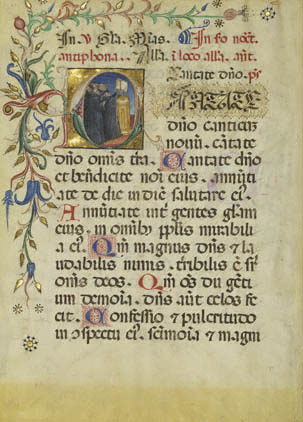 In v Gla. Mus. In so noct.
antiphona. Alla. i loco alla. ant.
Cantate dno. ps
CANTATE
dno canticum
nouū. cātate
dno omnis tra. Cantate dno
et benedicite noī eius. annūti
ate de die in diē salutare ei.
Annūtiate int gentes glām
eius. in omnib pplis mirabili
a ei. Qm magnus dns & la
udabilis nimis. tribilis ē sr
omīs deos. Qm oēs dii gēti
um demoīa. dns aut celos fe
cit. Confessio & pulcritudo
in ospectu ei. scīmoīa & magni